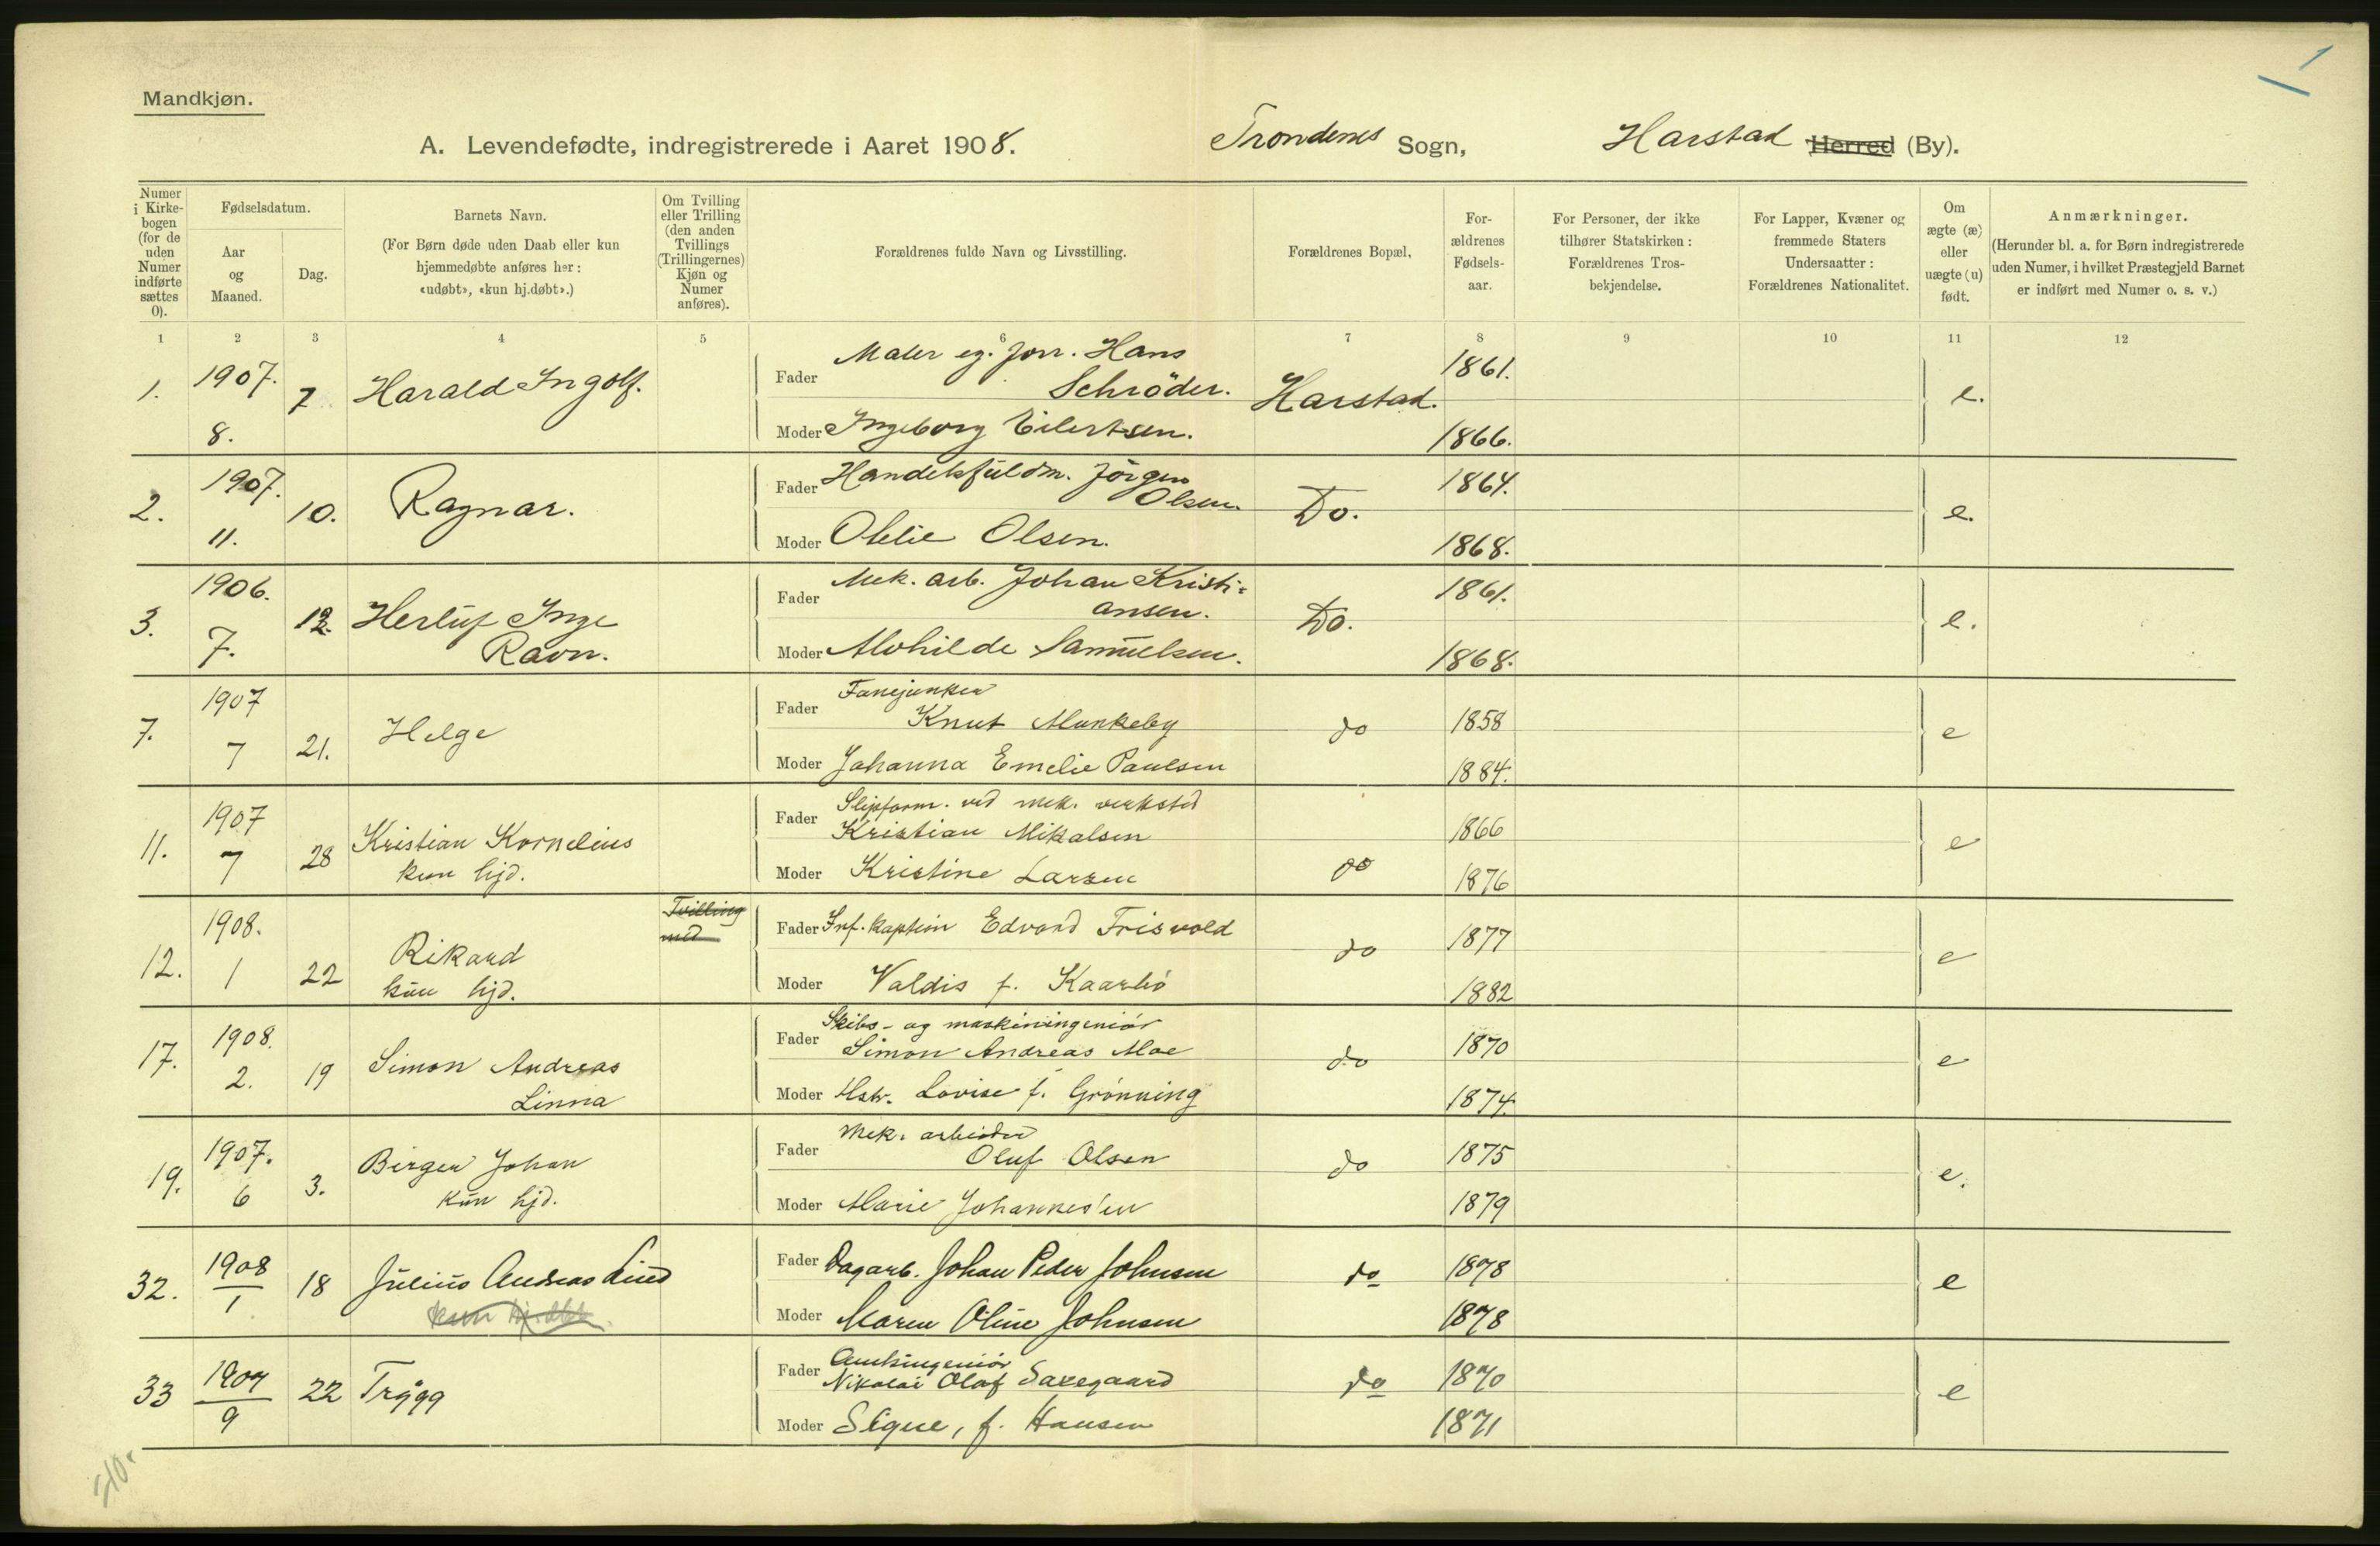 Mandkjøn.
A. Levendefødte, indregistrerede i Aaret 1908. Trondenes Sogn, Harstad Herred (By).
Numer i Kirke-bogen (for de uden Numer indførte sættes 0).
Fødselsdatum.
Aar og Maaned.
Dag.
Barnets Navn.
(For Børn døde uden Daab eller kun hjemmedøbte anføres her: «udøbt», «kun hj.døbt».)
Om Tvilling eller Trilling (den anden Tvillings (Trillingernes) Kjøn og Numer anføres).
Forældrenes fulde Navn og Livsstilling.
Forældrenes Bopæl,
For-ældrenes Fødsels-aar.
For Personer, der ikke tilhører Statskirken: Forældrenes Tros-bekjendelse.
For Lapper, Kvæner og fremmede Staters Undersaatter: Forældrenes Nationalitet.
Om ægte (æ) eller uægte (u) født.
Anmærkninger.
(Herunder bl. a. for Børn indregistrerede uden Numer, i hvilket Præstegjeld Barnet er indført med Numer o. s. v.)
1 2 3 4 5 6 7 8 9 10 11 12
1. 1907. 8. 7 Harald Ingolf.
Fader Maler Hans Schröder. Harstad. 1861. e.
Moder Ingeborg Eilertsen. 1866.
2. 1907. 11. 10. Ragnar.
Fader Handelsfuldm. Jörgen Olsen. Do. 1864. e.
Moder Olsen. 1868.
3. 1906. 7. 12. Herluf Inge Ravn.
Fader Mek. arb. Johan Kristi-ansen. Do. 1861. e.
Moder Samuelsen. 1868.
7. 1907 7 21. Helge
Fader Fanejunker Knut Munkeby do 1858 e
Moder Johanna Emelie Paulsen 1884.
11. 1907 7 28 Kristian Kornelius kun hjd.
Fader ved mek. verksted Kristian Mikalsen do 1866 e
Moder Kristine Larsen 1876
12. 1908. 1 22 Rikard kun hjd.
Tvilling med
Fader Inf. kaptein Edvard Frisvold do 1877 e
Moder Valdis f. Kaarbø 1882
17. 1908. 2. 19 Simon Andreas Linna
Fader Skibs- og maskiningeniør Simon Andreas Moe do 1870 e
Moder Hstr. Lovise f. Grønning 1874.
19. 1907. 6 3. Birger Johan kun hjd.
Fader Mek. arbeider Oluf Olsen do 1875 e.
Moder Marie Johannesen 1879
32. 1908 1 18 Julius Andreas Lind
kun hj.døbt
Fader Dagarb. Johan Peder Johnsen do 1878 e
Moder Maren Oline Johnsen 1878
33 1907 9 22 Trygg
Fader Amtsingeniør Nikolai Olaf Saxegaard do 1870 e
Moder Signe, f. Hansen 1871